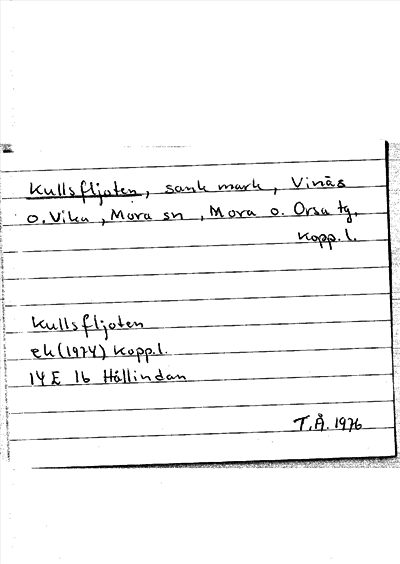 Kullsfljoten, sank mark, Vinäs
o. Vika, Mora sn, Mora o. Orsa tg,
Kopp. l.
Kullsfljoten
ek (1974) Kopp.l.
14 E 1b Hällindan
T.Å. 1976